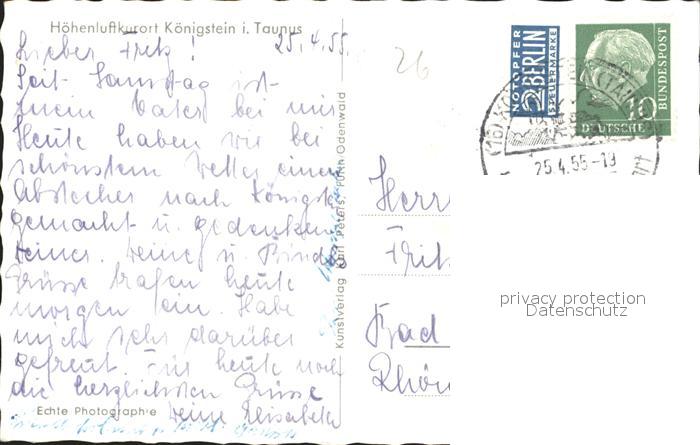 Höhenluftkurort Königstein i. Taunus
25.4.55.
Lieber Fritz!
Seit Samstag ist
mein Vater bei mir
Heute haben wir bei
schönstem Wetter einen
Abstecher nach Königst.
gemacht u. gedenken
Deiner. Deine u.
Grüsse trafen heute
morgen ein. Habe
mich sehr darüber
gefreut. Für heute noch
die herzlichsten Grüsse
Deine Elisabeth
Echte Photographie
Kunstverlag Karl Peters, Fürth/Odenwald
26
NOTOPFER
2 BERLIN
STEUERMARKE
10
DEUTSCHE
BUNDESPOST
25.4.55-19
Herrn
Fritz
Bad
Rhön
privacy protection
Datenschutz